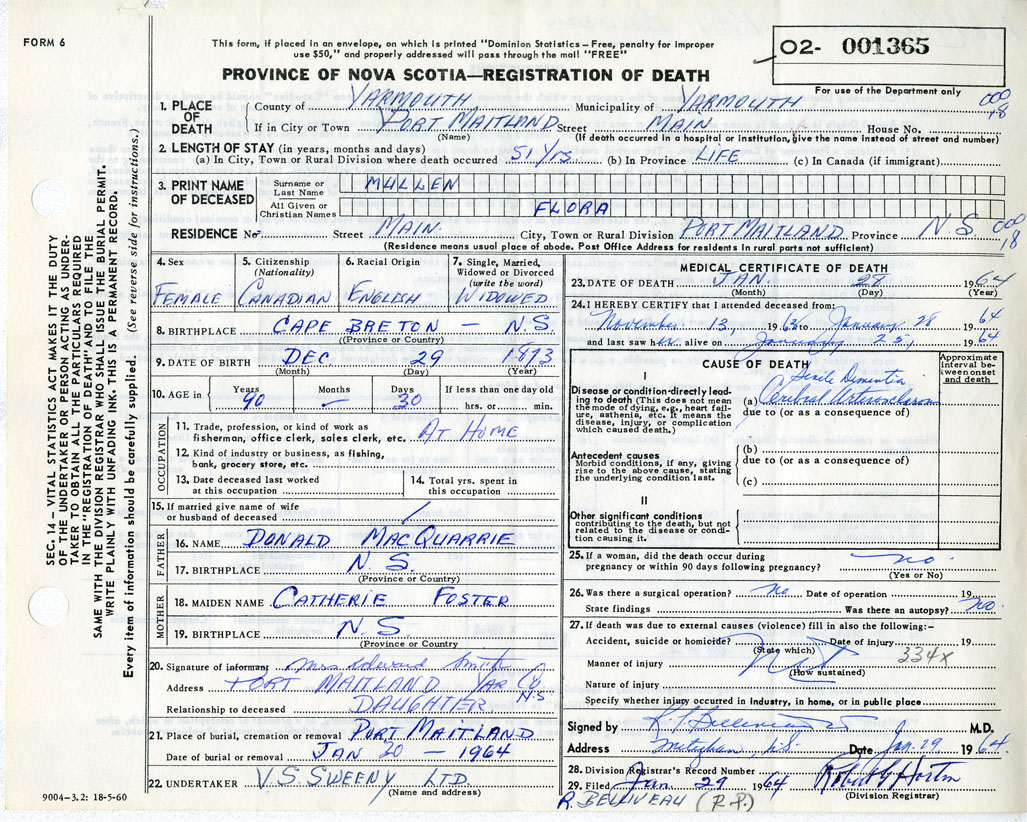 FORM 6
This form, if placed in an envelope, on which is printed "Dominion Statistics – Free, penalty for improper
use $50," and properly addressed will pass through the mail "FREE"
O2- 001365
For use of the Department only
PROVINCE OF NOVA SCOTIA—REGISTRATION OF DEATH
000
18
1. PLACE OF DEATH
County of YARMOUTH Municipality of YARMOUTH
If in City or Town PORT MAITLAND Street MAIN House No.
(Name) (If death occurred in hospital or institution, give the name instead of street and number)
2. LENGTH OF STAY (in years, months and days)
(a) In City, Town or Rural Division where death occurred 51 Yrs. (b) In Province LIFE (c) In Canada (if immigrant)
3. PRINT NAME OF DECEASED
Surname or Last Name MULLEN
All Given or Christian Names FLORA
RESIDENCE No Street MAIN. City, Town or Rural Division PORT MAITLAND Province N.S. 000
18
(Residence means usual place of abode. Post Office Address for residents in rural parts not sufficient)
SEC. 14 – VITAL STATISTICS ACT MAKES IT THE DUTY
OF THE UNDERTAKER OR PERSON ACTING AS UNDER-
TAKER TO OBTAIN ALL THE PARTICULARS REQUIRED
IN THE "REGISTRATION OF DEATH" AND TO FILE THE
SAME WITH THE DIVISION REGISTRAR WHO SHALL ISSUE THE BURIAL PERMIT.
WRITE PLAINLY WITH UNFADING INK. THIS IS A PERMANENT RECORD.
Every item of information should be carefully supplied. (See reverse side for instructions.)
4. Sex
FEMALE
5. Citizenship
(Nationality)
CANADIAN
6. Racial Origin
ENGLISH
7. Single, Married,
Widowed or Divorced
(write the word)
WIDOWED
8. BIRTHPLACE CAPE BRETON — N.S.
(Province or Country)
9. DATE OF BIRTH DEC. 29 1873
(Month) (Day) (Year)
10. AGE in
Years Months Days If less than one day old
90 — 30 hrs. or min.
OCCUPATION
11. Trade, profession, or kind of work as
fisherman, office clerk, sales clerk, etc. AT HOME
12. Kind of industry or business, as fishing,
bank, grocery store, etc.
13. Date deceased last worked
at this occupation
14. Total yrs. spent in
this occupation
15. If married give name of wife
or husband of deceased
FATHER
16. NAME DONALD MACQUARRIE
17. BIRTHPLACE N.S.
(Province or Country)
MOTHER
18. MAIDEN NAME CATHERIE FOSTER
19. BIRTHPLACE N.S.
(Province or Country
20. Signature of informant Mrs Edward Smith
Address PORT MAITLAND YAR CO
N.S
Relationship to deceased DAUGHTER
21. Place of burial, cremation or removal PORT MAITLAND
Date of burial or removal JAN 30 — 1964
22. UNDERTAKER V.S. SWEENY LTD.
(Name and address)
9004–3.2: 18-5-60
MEDICAL CERTIFICATE OF DEATH
23. DATE OF DEATH JAN. 28 1964
(Month) (Day) (Year)
24. I HEREBY CERTIFY that I attended deceased from:
November 13, 1963 to January 28 1964
and last saw her alive on January 25, 1964
CAUSE OF DEATH
Approximate
interval be-
tween onset
and death
I
Disease or condition directly lead-
ing to death (This does not mean
the mode of dying, e.g., heart fail-
ure, asthenia, etc. It means the
disease, injury, or complication
which caused death.)
Senile Dementia
(a) Cerebral
due to (or as a consequence of)
Antecedent causes
Morbid conditions, if any, giving
rise to the above cause, stating
the underlying condition last.
(b)
due to (or as a consequence of)
(c)
II
Other significant conditions
contributing to the death, but not
related to the disease or condi-
tion causing it.
25. If a woman, did the death occur during
pregnancy or within 90 days following pregnancy? no
(Yes or No)
26. Was there a surgical operation? No Date of operation 19
State findings Was there an autopsy? No.
27. If death was due to external causes (violence) fill in also the following:–
Accident, suicide or homicide? Date of injury 19
(State which)
334x
Manner of injury
(How sustained)
Nature of injury
Specify whether injury occurred in industry, in home, or in public place
Signed by M.D.
Address Meteghan, N.S. Date Jan. 29 1964
28. Division Registrar's Record Number
29. Filed Jan. 29 1964 Robert G Horton
(Division Registrar)
R. BELLIVEAU (R.P.)